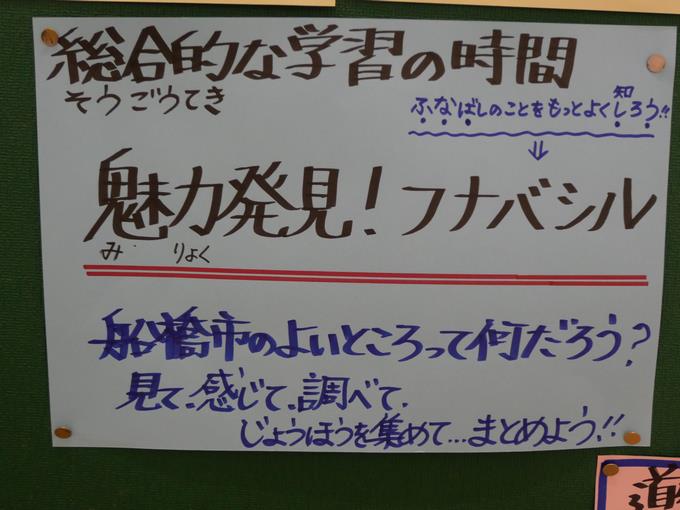 総合的な学習の時間
そうごうてき
知
ふなばしのことをもっとよくしろう!!
魅力発見!フナバシル
み りょく
船橋市のよいところって何だろう?
見て、感じて、調べて、
じょうほうを集めて…まとめよう!!